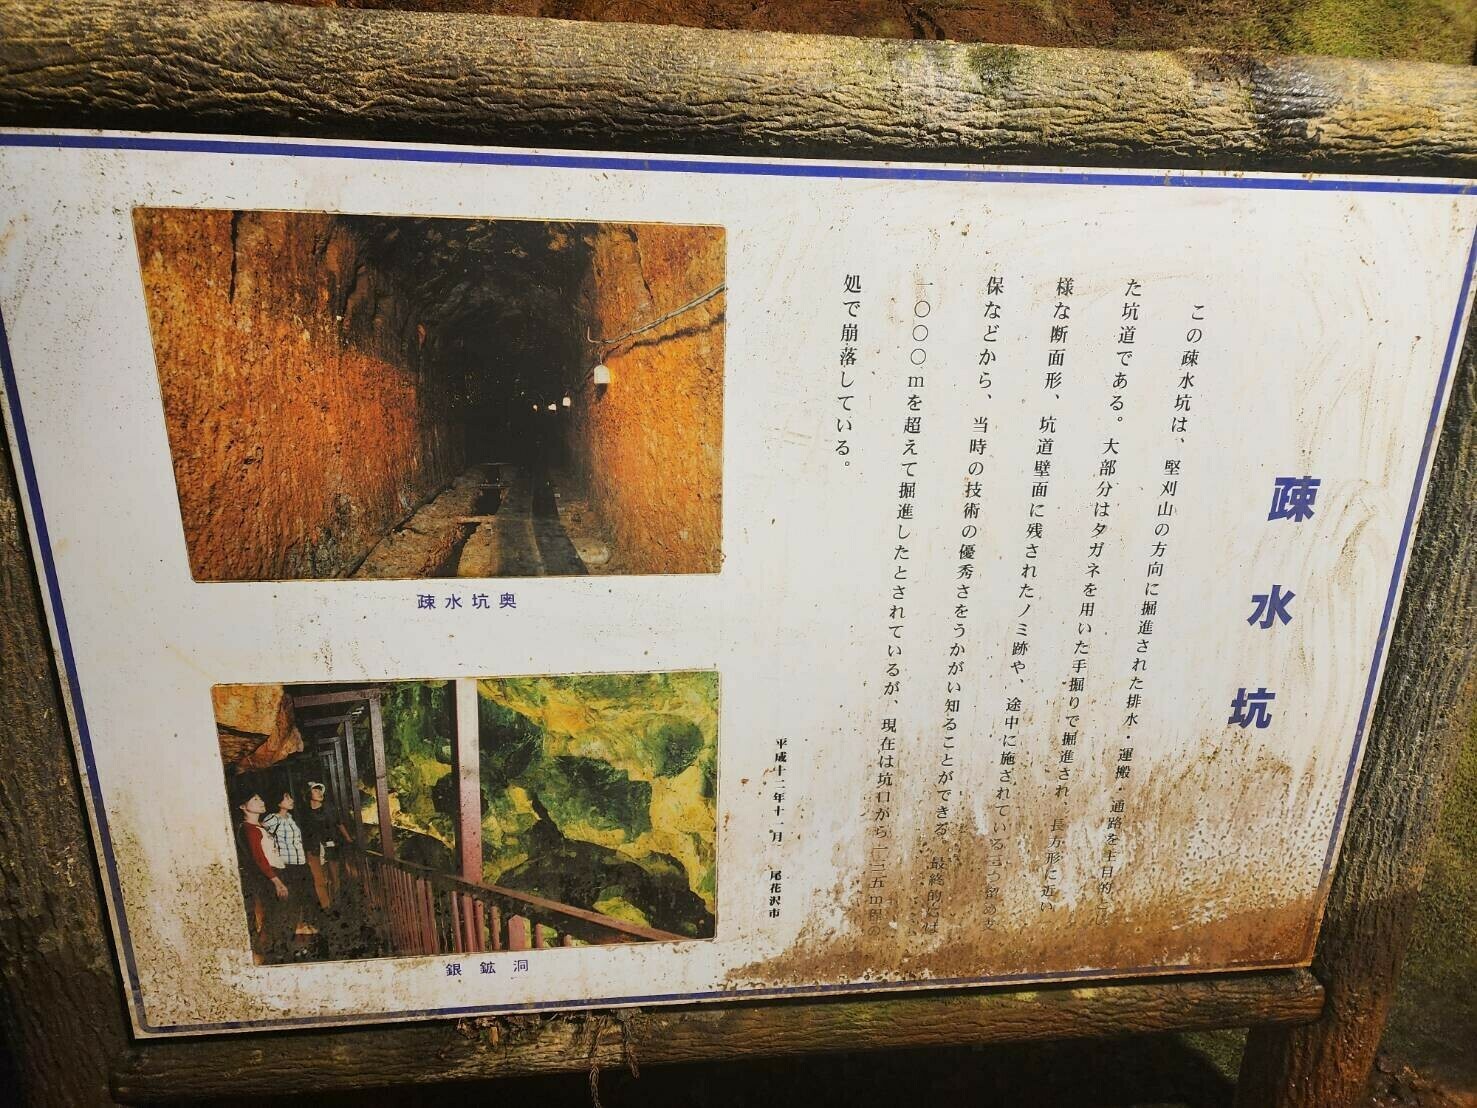 疎水坑
この疎水坑は、堅刈山の方向に掘進された排水・運搬・通路を主目的とし
た坑道である。大部分はタガネを用いた手掘りで掘進され、長方形に近い
様な断面形、坑道壁面に残されたノミ跡や、途中に施されている
保などから、当時の技術の優秀さをうかがい知ることができる。最終的には
一〇〇〇mを超えて掘進したとされているが、現在は坑口から一三五m程の
処で崩落している。
平成十二年十一月 尾花沢市
疎水坑奥
銀鉱洞